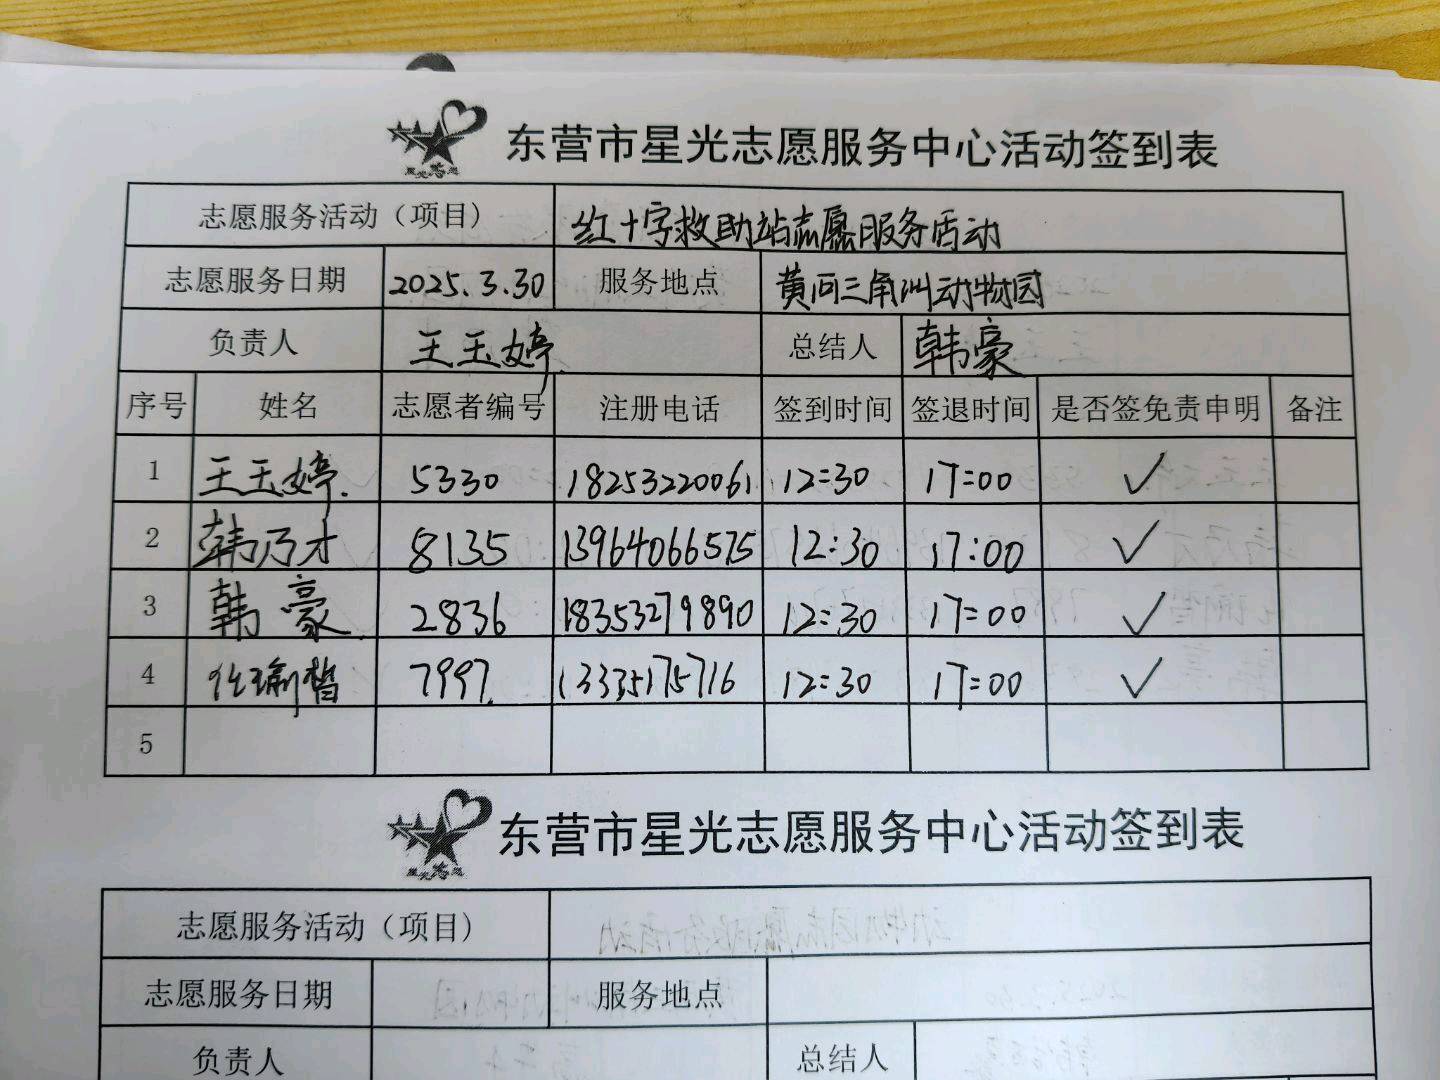 东营市星光志愿服务中心活动签到表
志愿服务活动（项目） 红十字救助站志愿服务活动
志愿服务日期 2025.3.30 服务地点 黄河三角洲动物园
负责人 王玉婷 总结人 韩豪
序号 姓名 志愿者编号 注册电话 签到时间 签退时间 是否签免责申明 备注
1 王玉婷 5330 18253220061 12:30 17:00 ✓
2 韩乃才 8135 13964066575 12:30 17:00 ✓
3 韩豪 2836 18353279890 12:30 17:00 ✓
4 任瑜皙 7997 13335175716 12:30 17:00 ✓
5
东营市星光志愿服务中心活动签到表
志愿服务活动（项目）
志愿服务日期 服务地点
负责人 总结人